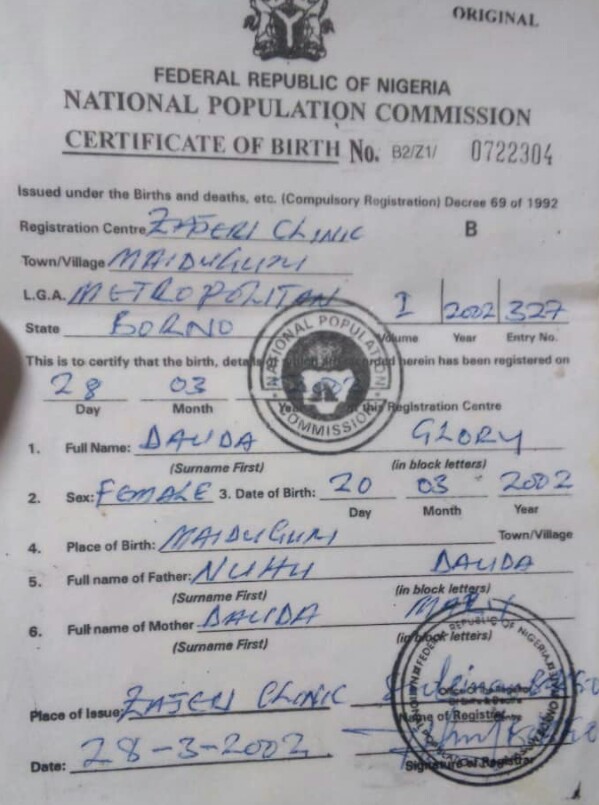 ORIGINAL
FEDERAL REPUBLIC OF NIGERIA
NATIONAL POPULATION COMMISSION
CERTIFICATE OF BIRTH No. B2/Z1/ 0722304
Issued under the Births and deaths, etc. (Compulsory Registration) Decree 69 of 1992
Registration Centre ZAJERI CLINIC B
Town/Village MAIDUGURI
L.G.A. METROPOLITAN I 2002 327
State BORNO Volume Year Entry No.
This is to certify that the birth, details of which are recorded herein has been registered on
28 03
Day Month Year at this Registration Centre
1. Full Name: DAUDA GLORY
(Surname First) (in block letters)
2. Sex: FEMALE 3. Date of Birth: 20 03 2002
Day Month Year
4. Place of Birth: MAIDUGURI Town/Village
5. Full name of Father: NUHU DAUDA
(Surname First) (in block letters)
6. Full name of Mother DAUDA MARY
(Surname First) (in block letters)
Place of Issue: ZAJERI CLINIC
Name of Registrar
Date: 28-3-2002
Signature of Registrar
NATIONAL POPULATION COMMISSION
FEDERAL REPUBLIC OF NIGERIA